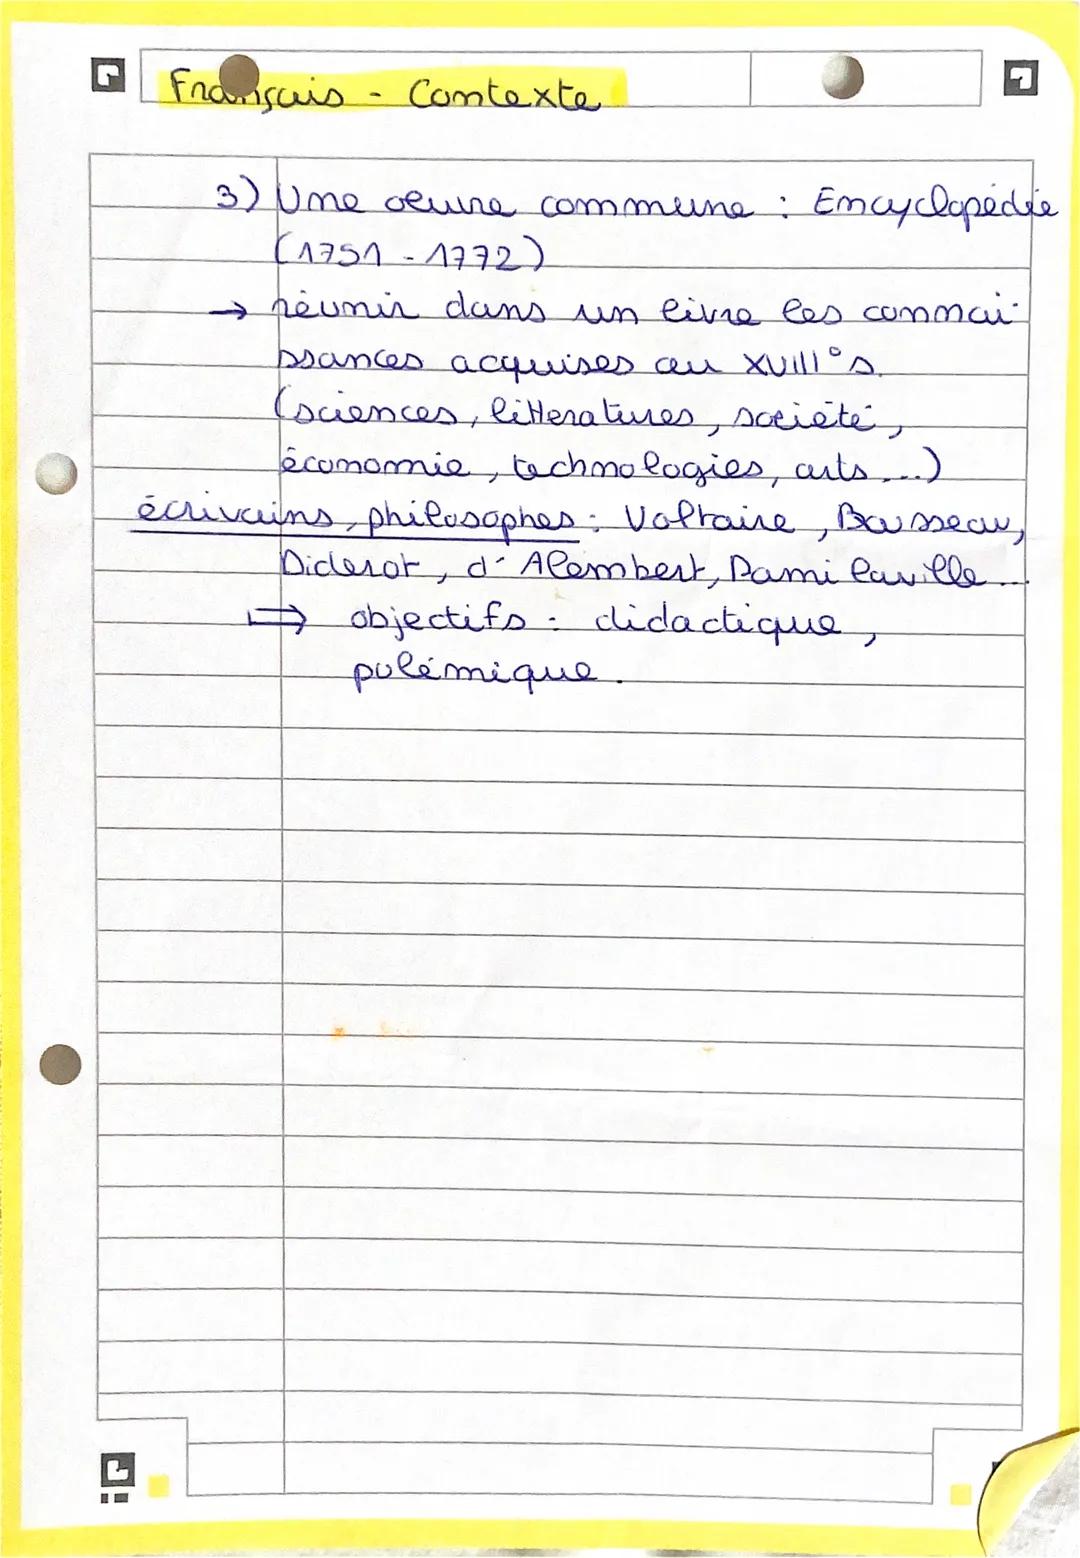 Français - Contexte
3) Une oeuvre commune : Encyclopédie
(1751 - 1772)
→ réunir dans un livre les connai-
ssances acquises au XVIII°s.
(sciences, litteratures, société,
économie, technologies, arts...)
écrivains, philosophes : Voltaire, Rousseau,
Diderot, d'Alembert, Damilaville...
⇒ objectifs : didactique,
polémique.